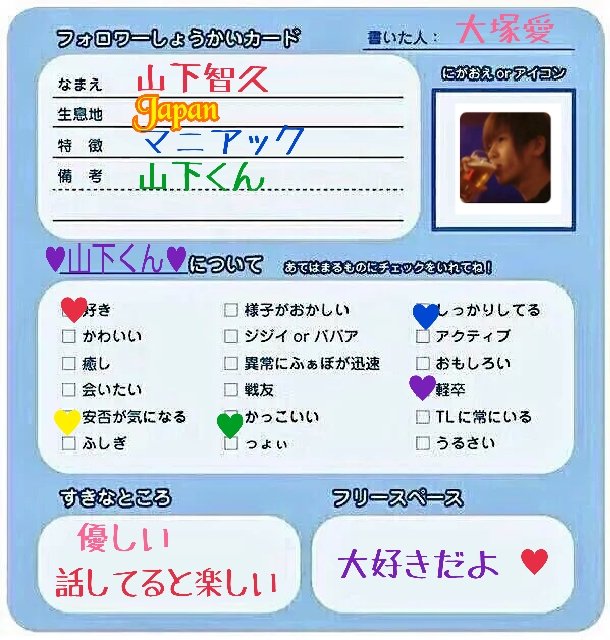 フォロワーしょうかいカード
書いた人： 大塚愛
なまえ 山下智久
生息地 Japan
特 徴 マニアック
備 考 山下くん
にがおえ or アイコン
♥山下くん♥について あてはまるものにチェックをいれてね！
♥好き □様子がおかしい ♥しっかりしてる
□かわいい □ジジイ or ババア □アクティブ
□癒し □異常にふぁぼが迅速 □おもしろい
□会いたい □戦友 ♥軽卒
♥安否が気になる ♥かっこいい □TLに常にいる
□ふしぎ □つょぃ □うるさい
すきなところ
優しい
話してると楽しい
フリースペース
大好きだよ ♥